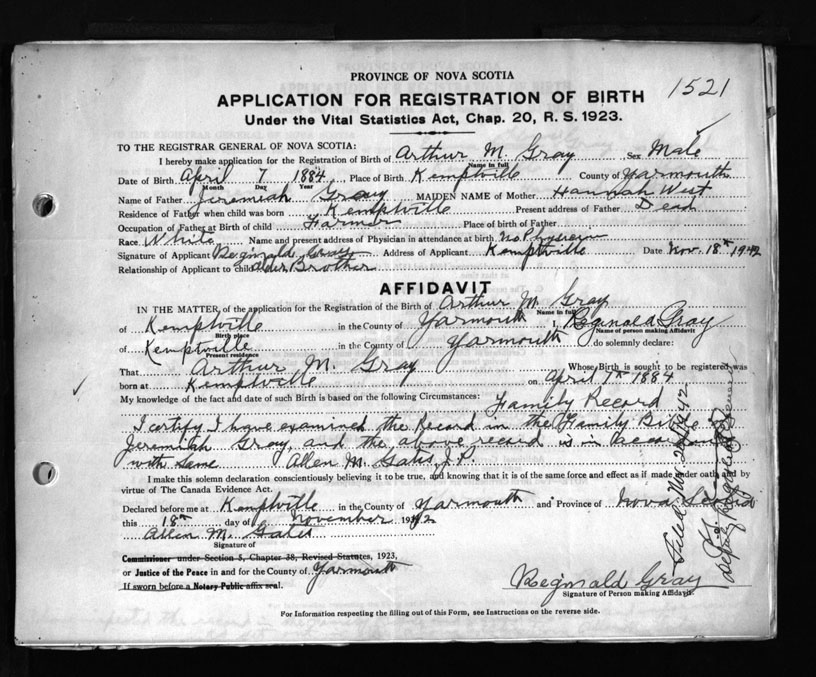 PROVINCE OF NOVA SCOTIA
1521
APPLICATION FOR REGISTRATION OF BIRTH
Under the Vital Statistics Act, Chap. 20, R. S. 1923.
TO THE REGISTRAR GENERAL OF NOVA SCOTIA:
I hereby make application for the Registration of Birth of Arthur M. Gray Sex Male
Name in full
Date of Birth April 7 1884 Place of Birth Kemptville County of Yarmouth
Month Day Year
Name of Father Jeremiah Gray MAIDEN NAME of Mother Hannah West
Residence of Father when child was born Kemptville Present address of Father Dead
Occupation of Father at Birth of child Farmer Place of birth of Father
Race White Name and present address of Physician in attendance at birth No Physician
Signature of Applicant Reginald Gray Address of Applicant Kemptville Date Nov. 18th 1942
Relationship of Applicant to child Older Brother
AFFIDAVIT
IN THE MATTER, of the application for the Registration of the Birth of Arthur M. Gray
Name in full
of Kemptville in the County of Yarmouth I, Reginald Gray
Birth place Name of person making Affidavit
of Kemptville in the County of Yarmouth do solemnly declare:
Present residence
That Arthur M. Gray Whose Birth is sought to be registered was
born at Kemptville on April 7th 1884
My knowledge of the fact and date of such Birth is based on the following Circumstances: Family Record
I certify I have examined the Record in the Family Bible of
Jeremiah Gray, and the above record is in accordance
with same Allen M. Gates J.P.
I make this solemn declaration conscientiously believing it to be true, and knowing that it is of the same force and effect as if made under oath and by
virtue of The Canada Evidence Act.
Declared before me at Kemptville in the County of Yarmouth and Province of Nova Scotia
this 18th day of November 1942
Allen M. Gates
Signature of
Commissioner under Section 5, Chapter 38, Revised Statutes, 1923,
or Justice of the Peace in and for the County of Yarmouth
If sworn before a Notary Public affix seal.
Reginald Gray
Signature of Person making Affidavit.
For Information respecting the filling out of this Form, see Instructions on the reverse side.
Filed Nov. 1942
Deputy Registrar General